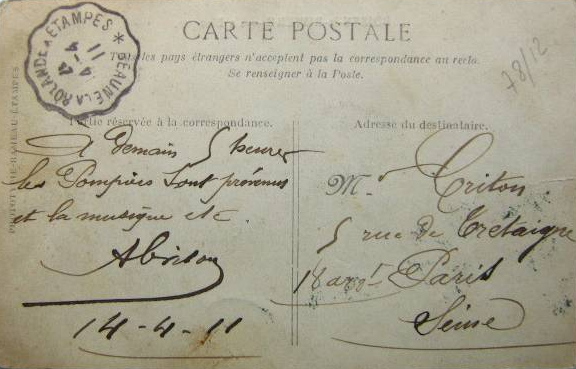 CARTE POSTALE
Tous les pays étrangers n'acceptent pas la correspondance au recto.
Se renseigner à la Poste.
78/12
BEAUNE LA ROLANDE A ETAMPES
4 - 4
11
Partie réservée à la correspondance.
A demain 5 heures
les Pompiers sont prévenus
et la musique etc
14-4-11
Adresse du destinataire.
Mr Criton
5 rue de Tretaigne
18 arrt Paris
Seine
ÉTAMPES